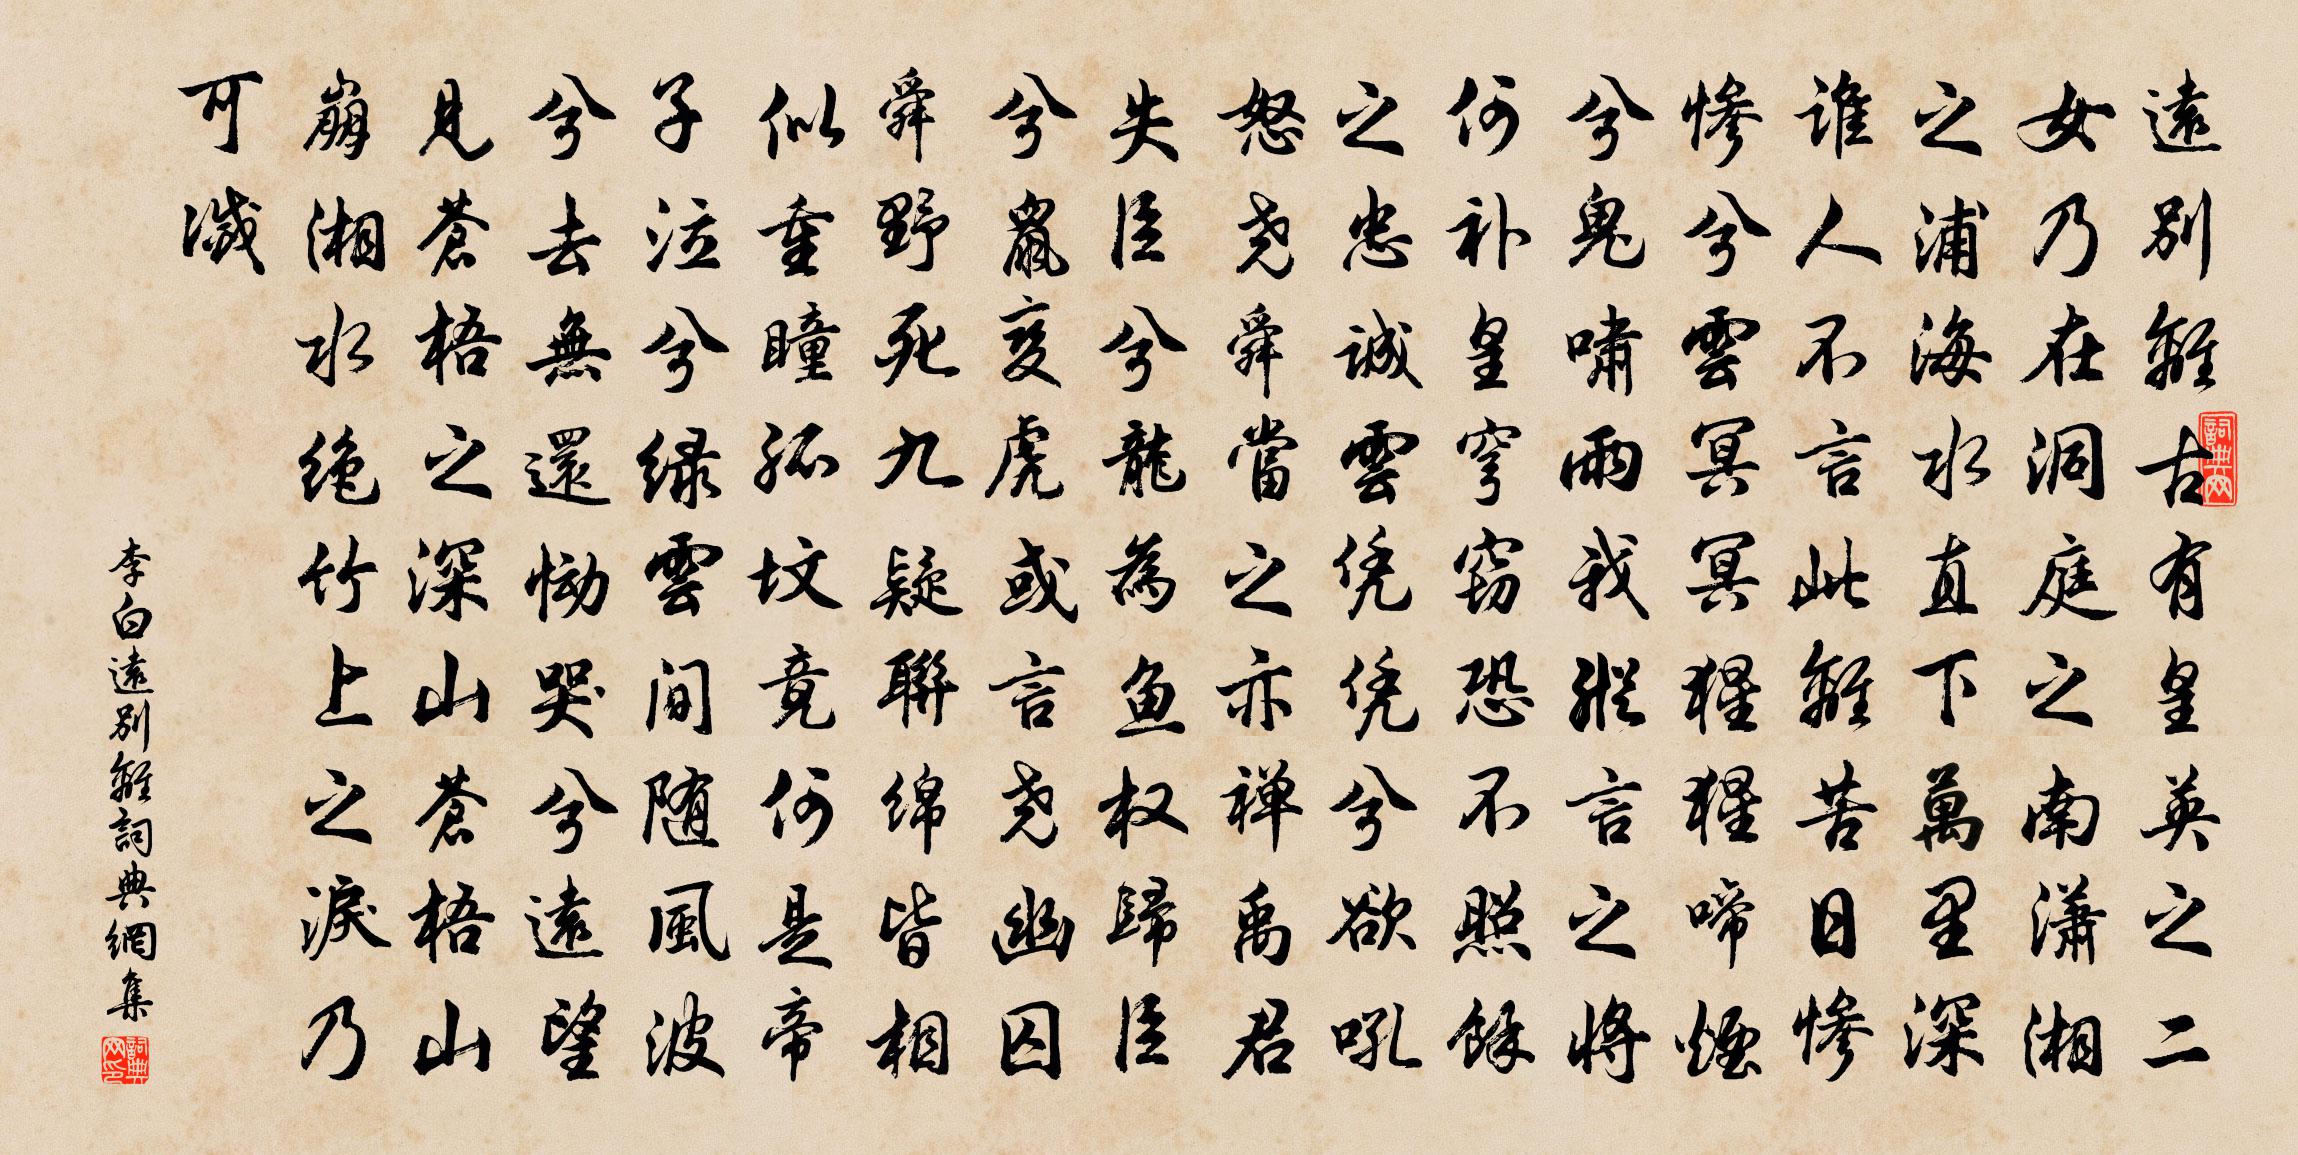 遠別離古有皇英之二
女乃在洞庭之南瀟湘
之浦海水直下萬里深
誰人不言此離苦日慘
慘兮雲冥冥猩猩啼煙
兮鬼嘯雨我縱言之將
何补皇穹竊恐不照餘
之忠誠雲凭凭兮欲吼
怒尧舜當之亦禅禹君
失臣兮龍為鱼权歸臣
兮鼠变虎或言尧幽囚
舜野死九疑聯绵皆相
似重瞳孤坟竟何是帝
子泣兮绿雲间随風波
兮去無還慟哭兮遠望
見蒼梧之深山蒼梧山
崩湘水绝竹上之淚乃
可滅
李白遠別離詞典網集
詞典网
詞典网印